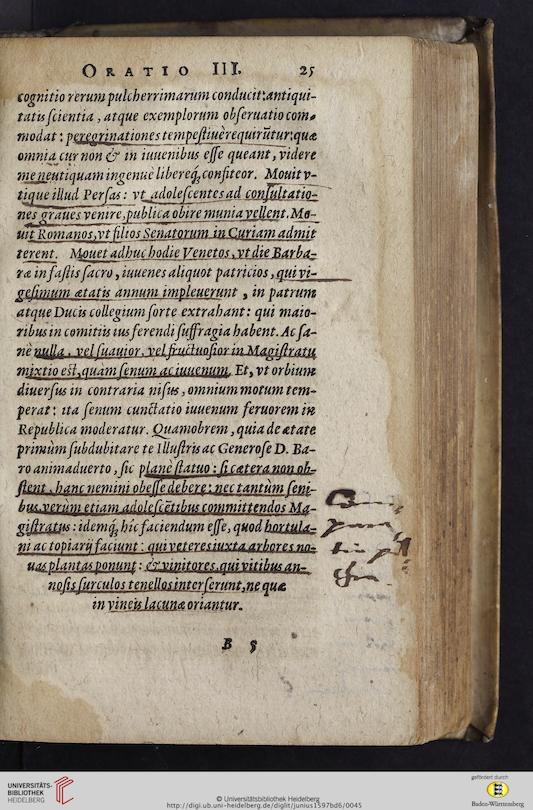 ORATIO III. 25
cognitio rerum pulcherrimarum conducit: antiqui-
tatis ſcientia, atque exemplorum obſeruatio com-
modat: peregrinationes tempeſtiuè requirūtur: quæ
omnia cur non & in iuuenibus eſſe queant, videre
me neutiquam ingenuè libereq́; confiteor. Mouit v-
tique illud Perſas: vt adoleſcentes ad conſultatio-
nes graues venire, publica obire munia vellent. Mo-
uit Romanos, vt filios Senatorum in Curiam admit
terent. Mouet adhuc hodie Venetos, vt die Barba-
ræ in faſtis ſacro, iuuenes aliquot patricios, qui vi-
geſimum ætatis annum impleuerunt, in patrum
atque Ducis collegium ſorte extrahant: qui maio-
ribus in comitiis ius ferendi ſuffragia habent. Ac ſa-
nè nulla, vel ſuauior, vel fructuoſior in Magiſtratu
mixtio eſt, quàm ſenum ac iuuenum. Et, vt orbium
diuerſus in contraria niſus, omnium motum tem-
perat: ita ſenum cunctatio iuuenum feruorem in
Republica moderatur. Quamobrem, quia de ætate
primùm ſubdubitare te Illuſtris ac Generoſe D. Ba-
ro animaduerto, ſic planè ſtatuo: ſi cætera non ob-
ſtent, hanc nemini obeſſe debere: nec tantùm ſeni-
bus, verùm etiam adoleſcētibus committendos Ma-
giſtratus: idemq́; hic faciendum eſſe, quod hortula-
ni ac topiarij faciunt: qui veteres iuxta arbores no-
uas plantas ponunt: & vinitores, qui vitibus an-
noſis ſurculos tenellos interſerunt, ne quæ
in vineis lacunæ oriantur.
B 5
UNIVERSITÄTS-
BIBLIOTHEK
HEIDELBERG
© Universitätsbibliothek Heidelberg
http://digi.ub.uni-heidelberg.de/diglit/junius1597bd6/0045
gefördert durch
Baden-Württemberg